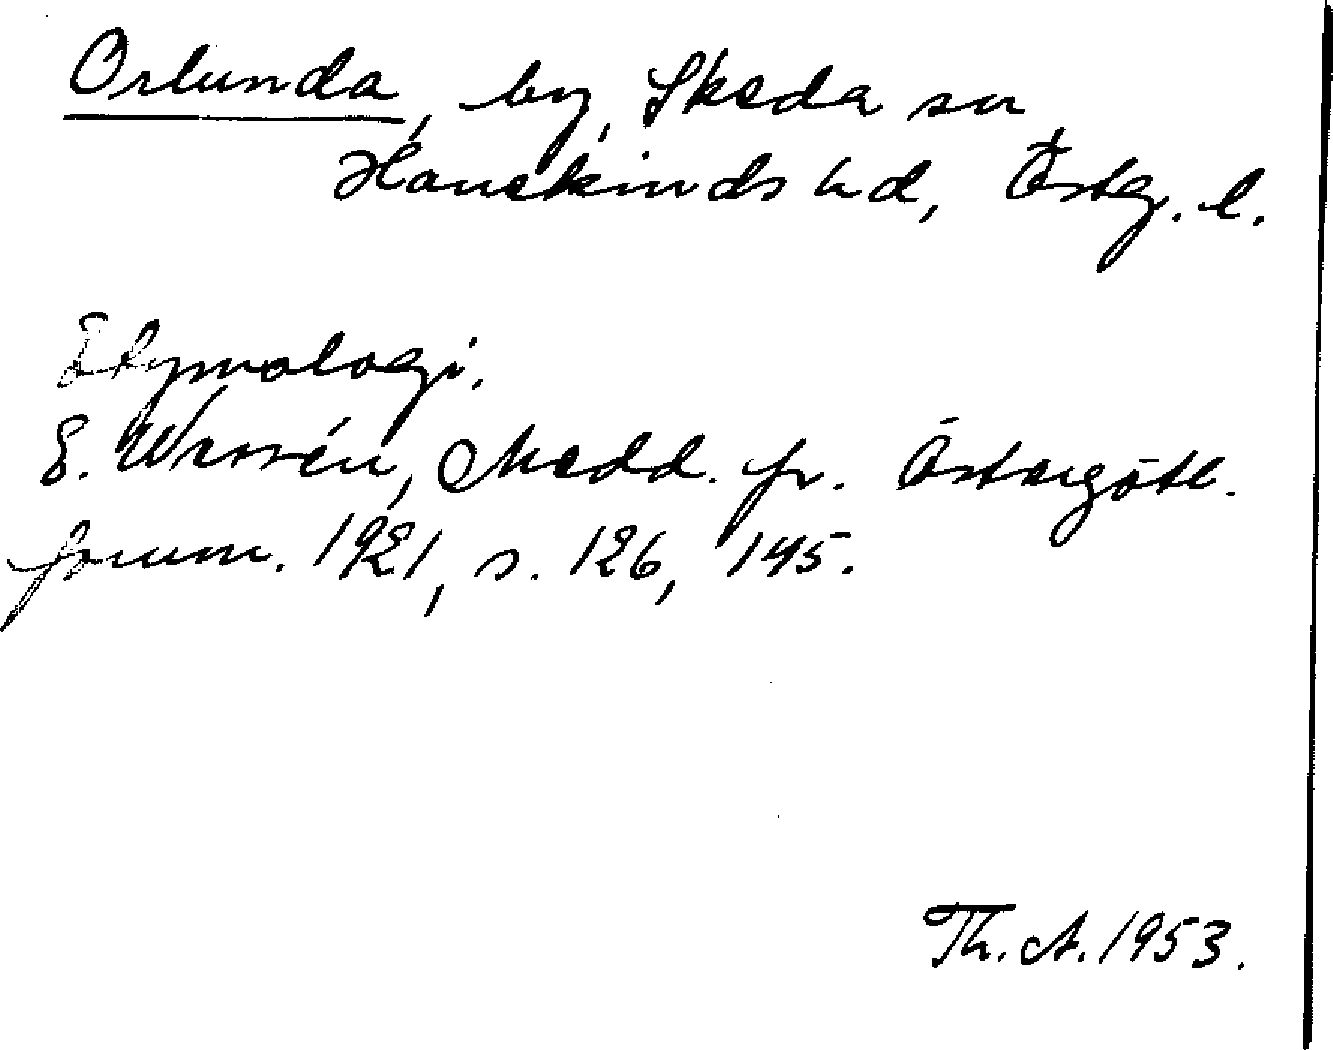 Orlunda, by, Skeda sn
Hanekinds hd, Östg. l.
Etymologi.
E. Wessén, Medd. fr. Östergötl.
fornm. 1921, s. 126, 145.
Th. A. 1953.